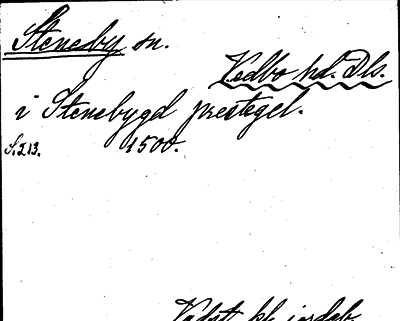 Steneby sn.
Vedbo hd. Dls.
i Stenebygd prestegel.
S.213. 1500.
Vadst. kl. jordeb.